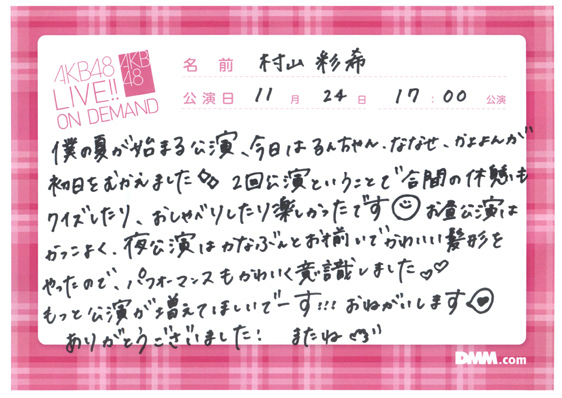 AKB48
LIVE!!
ON DEMAND
AKB
48
名 前 村山 彩希
公演日 11 月 24 日 17:00 公演
僕の夏が始まる公演、今日はるんちゃん、ななせ、かよよんが
初日をむかえました◇◇ 2回公演ということで合間の休憩も
クイズしたり、おしゃべりしたり楽しかったです お昼公演は
かっこよく、夜公演はかなぶんとお揃いでかわいい髪形を
やったので、パフォーマンスもかわいく意識しました♡♡
もっと公演が増えてほしいでーす!!! おねがいします
ありがとうございました! またね
DMM.com